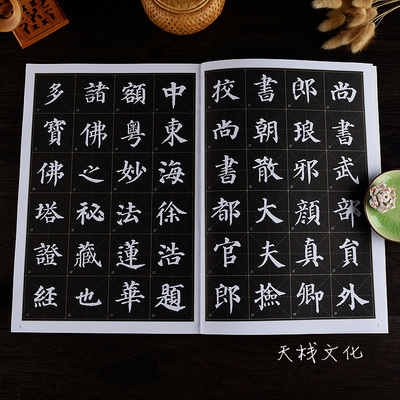 尚書武部貟外
郎琅邪顔真卿
書朝散大夫撿
挍尚書都官郎
中東海徐浩題
額粵妙法蓮華
諸佛之秘藏也
多寶佛塔證経
天栈文化